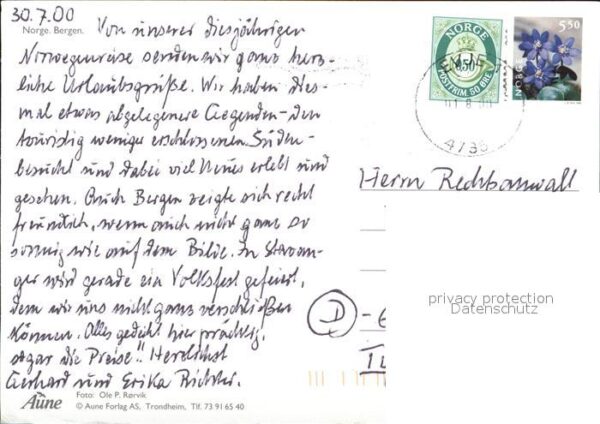 30.7.00
Norge. Bergen.
Von unserer diesjährigen
Norwegenreise senden wir ganz herz-
liche Urlaubsgrüße. Wir haben dies-
mal etwas abgelegenere Gegenden - den
touristig weniger erschlossenen Süden -
besucht und dabei viel Neues erlebt und
gesehen. Auch Bergen zeigte sich recht
freundlich, wenn auch nicht ganz so
sonnig wie auf dem Bilde. In Stavan-
ger wird gerade ein Volksfest gefeiert,
dem wir uns nicht ganz verschließen
können. Alles gedeiht hier prächtig,
sogar die Preise!! Herzlichst
Gerhard und Erika Richter.
Aune
Foto: Ole P. Rørvik
© Aune Forlag AS, Trondheim, Tlf. 73 91 65 40
NORGE
POSTFRIM 50 ØRE
5.50
NORGE
01 8 00
4735
Herrn Rechtsanwalt
privacy protection
Datenschutz
D - 6